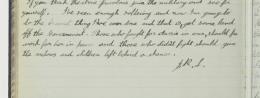 If you think the above frivolous join the military and see for
yourself. I've seen enough suffering and now I'm going to
do the thing I've one done and that is get some land
off the Government. Those who fought for choice is one, should be
work for him in peace and those who didn't fight should give
the widows and children left behind a chance.
J.R.S.